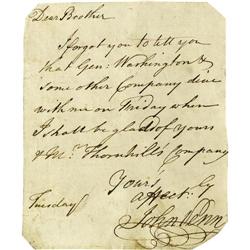 Dear Brother
I forgot you to tell you
that Gen: Washington &
some other Company dine
with me on Friday when
I shall be glad of yours
& Mr. Thornhill's Company
Yours
affectly
John Penn
Tuesday